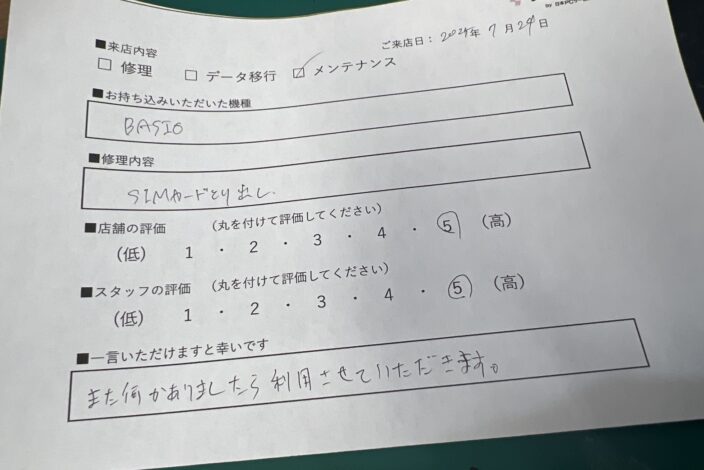 by 日本PCサービ
ご来店日：2024年 7月24日
■来店内容
□ 修理 □ データ移行 ☑ メンテナンス
■お持ち込みいただいた機種
BASIO
■修理内容
SIMカードとり出し
■店舗の評価 （丸を付けて評価してください）
（低） 1 ・ 2 ・ 3 ・ 4 ・ ⑤ （高）
■スタッフの評価 （丸を付けて評価してください）
（低） 1 ・ 2 ・ 3 ・ 4 ・ ⑤ （高）
■一言いただけますと幸いです
また何かありましたら利用させていただきます。